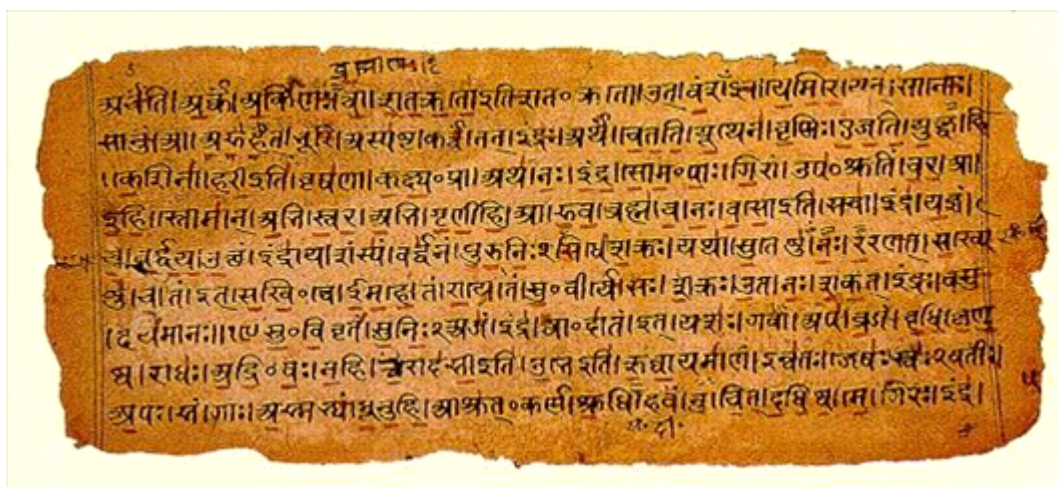 अर्चंति। अर्कं। अर्किणः। त्वा। शतक्रतो इति शत॰क्रतो। उत्। वंशंऽइव। येमिरे। यत्। सानोः।
सानुं। आ। अरुहत्। भूरि। अस्पष्ट। कर्त्वं। तत्। इंद्रः। अर्थं। चेतति। यूथेन। वृष्णिः। एजति। युक्ष्व। हि
।केशिना। हरी इति। वृषणा। कक्ष्य॰प्रा। अथ। नः। इंद्र। सोम॰पाः। गिरां। उप॰श्रुतिं। चर। आ।
इहि। स्तोमान्। अभि। स्वर। अभि। गृणीहि। आ। रुव। ब्रह्म। च। नः। वसो इति। सचा। इंद्र। यज्ञं।
च। वर्द्धय। उक्थं। इंद्राय। शंस्यं। वर्द्धनं। पुरुनिःऽसिधे। शक्रः। यथा। सुतेषु। नः। ररणत्। सख्ये
षु। च। तं। इत्। सखि॰त्वे। ईमहे। तं। राये। तं। सु॰वीर्ये। सः। शक्रः। उत। नः। शकत्। इंद्रः। वसु
।दयमानः॥१९ सु॰विवृतं। सुनिःऽअजं। इंद्र। त्वा॰दातं। इत्। यशः। गवां। अप। व्रजं। वृधि। कृणु
ष्व। राधः। अद्रि॰वः। नहि। त्वा। रोदसी इति। उभे इति। ऋघायमाणं। इन्वतः। जेषः। स्वःऽवतीः।
अपः। सं। गाः। अस्मभ्यं। धूनुहि। आश्रुत्॰कर्ण। श्रुधि। हवं। नु। चित्। दधिष्व। मे। गिरः। इंद्र।